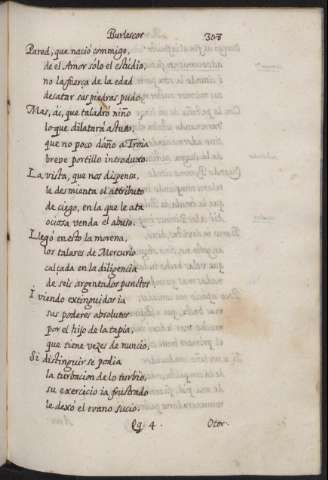 Burlescos 303
Pared, que nació conmigo,
de el Amor sólo el estudio,
no la fuerça de la edad
desatar sus piedras pudo.
Mas, ái, que taladró niño
lo que dilatára astuto,
que no poco daño a Troia
breve portillo introduxo.
La vista, que nos dispensa,
le desmienta el attributo
de ciego, en la que le ata
ociosa venda el abuso.
Llegó en esto la morena,
los talares de Mercurio
calçada en la diligencia
de seis argentados punctos
I viendo extinguidos ia
sus poderes absolutos
por el hijo de la tapia,
que tiene vezes de nuncio,
Si distinguir se podia
la turbacion de lo turbio,
su exercicio ia frustrado
le dexó el evano sucio.
Qq. 4. Otor